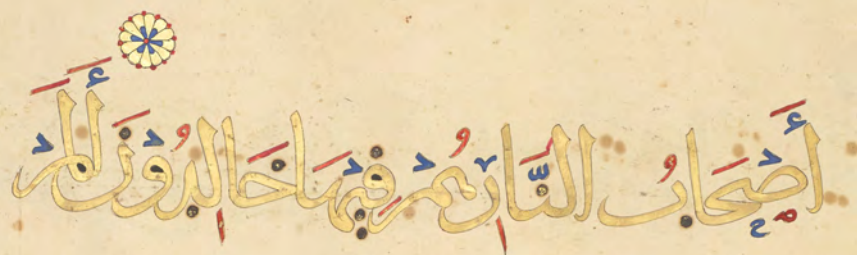 أَصْحَابُ النَّارِ هُمْ فِيهَا خَالِدُونَ أَلَمْ